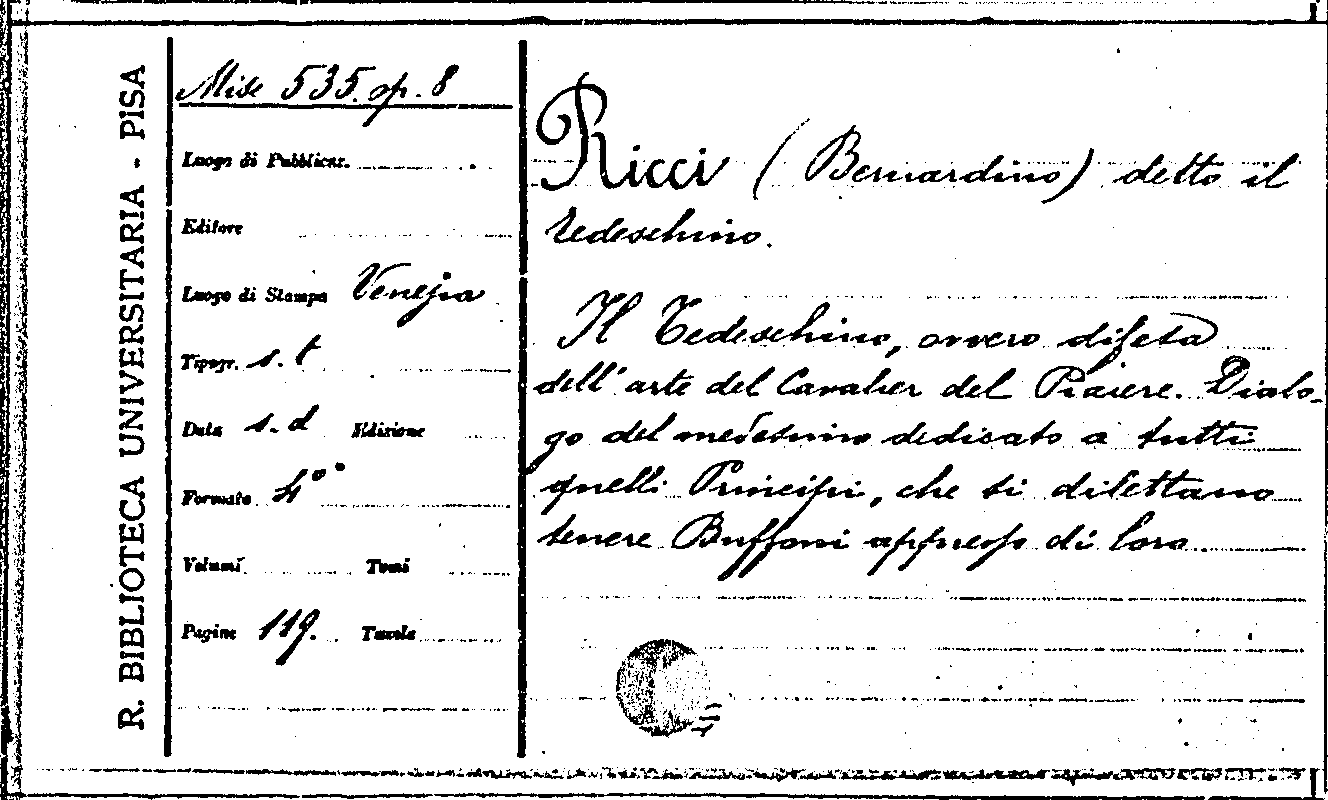 R. BIBLIOTECA UNIVERSITARIA - PISA
Misc 535. op. 8
Luogo di Pubblicaz.
Editore
Luogo di Stampa Venezia
Tipogr. s. t
Data s. d Edizione
Formato 4°
Volumi Tomi
Pagine 119. Tavole
Ricci (Bernardino) detto il
tedeschino.
Il Tedeschino, ovvero difesa
dell'arte del Cavalier del Piacere. Dialo-
go del medesimo dedicato a tutti
quelli Principi, che si dilettano
tenere Buffoni appresso di loro